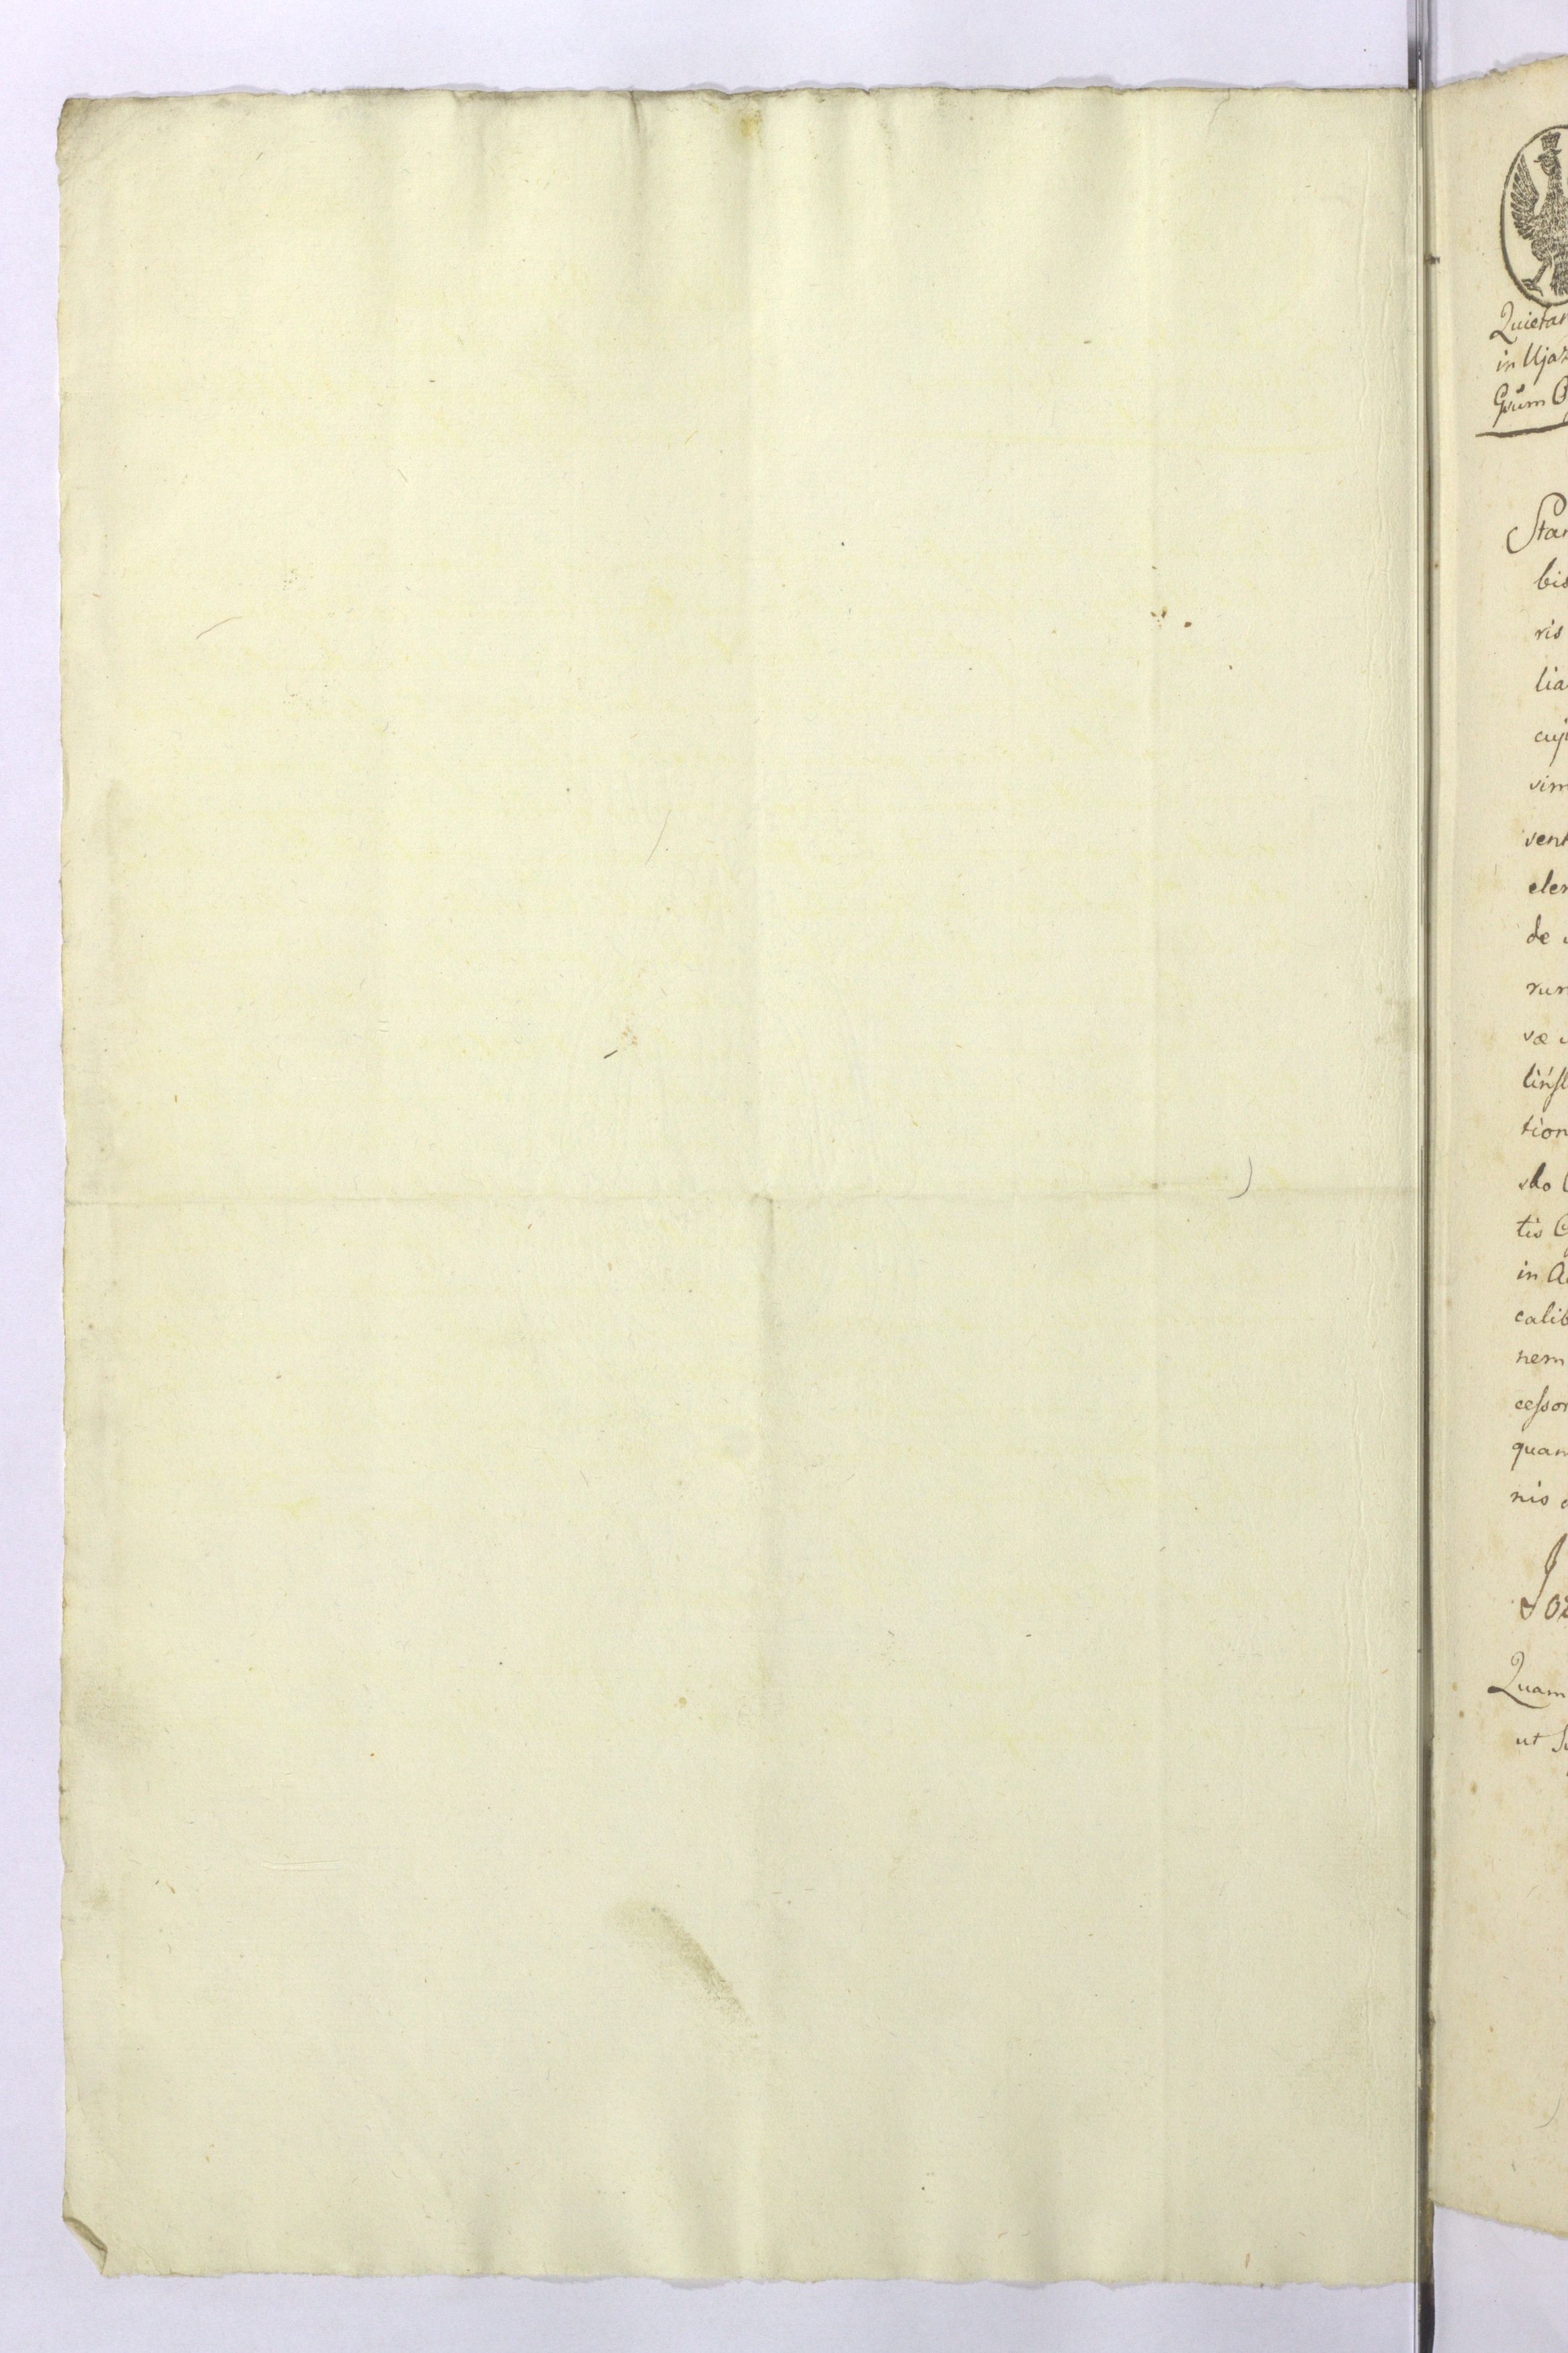 Quietan
in Ujaz
Gsum
Star
bis
ris
lia
cuj
sim
vent
eler
de
rum
sæ
lińsk
tion
sko
tis
in A
calib
nem
cessor
quam
nis
Joz
Quam
ut Su